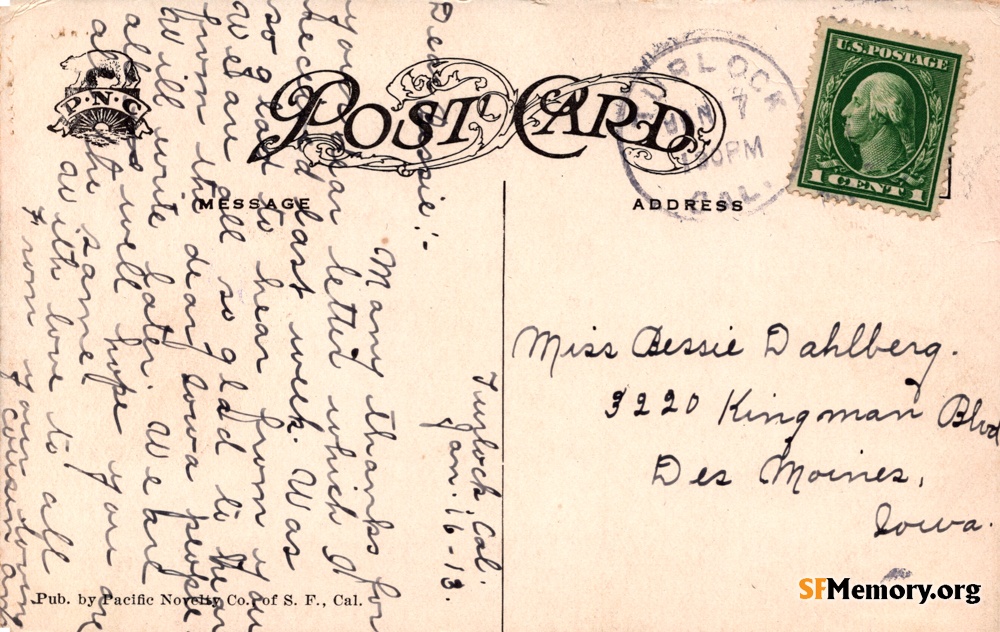 P.N.C.
POST CARD
TURLOCK
JAN 7
PM
CAL.
U.S. POSTAGE
1 CENT 1
MESSAGE
ADDRESS
Turlock, Cal.
Jan. 16-13.
Dear Bessie:-
Many thanks for
your dear letter which I
received last week. Was
so glad to hear from you
We are all so glad to hear
from the dear Iowa people.
Will write later. We are
all well hope you are
all the same
With love to all
From your loving
cousin and
Miss Bessie Dahlberg.
3220 Kingman Blvd
Des Moines,
Iowa.
Pub. by Pacific Novelty Co., of S. F., Cal.
SFMemory.org